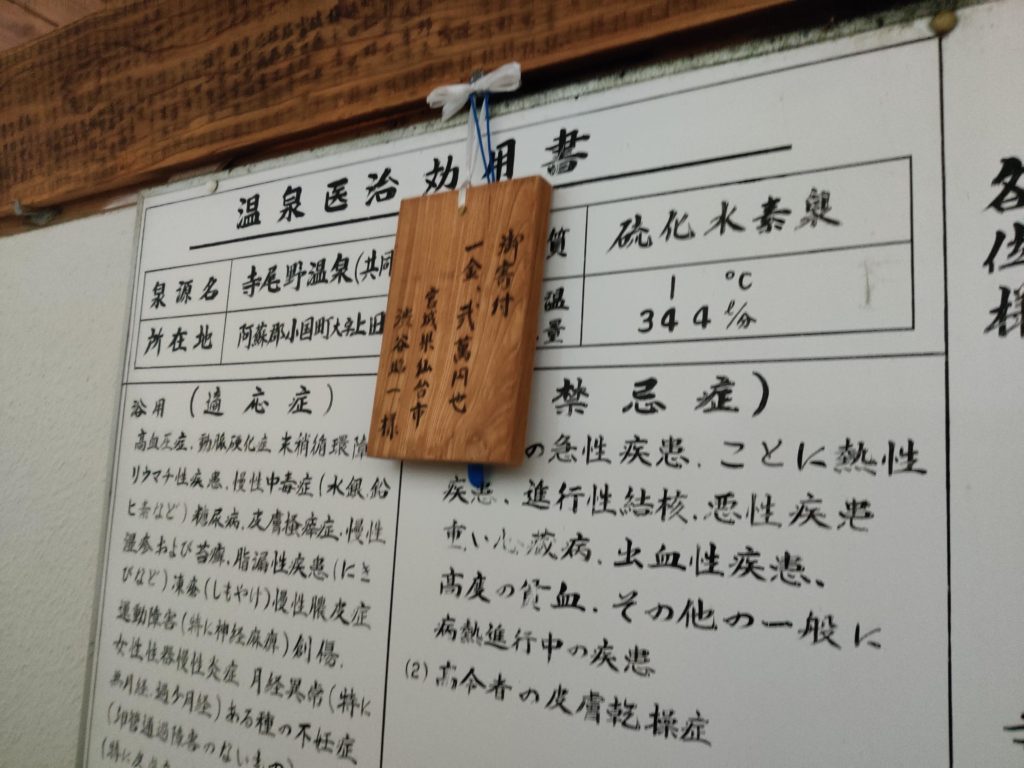 温泉医治効用書
泉源名 寺尾野温泉(共同
所在地 阿蘇郡小国町大字上田
質 硫化水素泉
温 1 ℃
量 344 ℓ/分
御寄付
一金、弐萬円也
宮城県仙台市
渋谷 一 様
浴用 (適応症)
高血圧症、動脈硬化症、末梢循環障
リウマチ性疾患、慢性中毒症(水銀、鉛
ヒ素など)糖尿病、皮膚掻痒症、慢性
湿疹および苔癬、脂漏性疾患(にき
びなど)凍瘡(しもやけ)慢性膿皮症
運動障害(特に神経麻痺)創傷、
女性性器慢性炎症、月経異常(特に
無月経、過少月経)ある種の不妊症
(卵管通過障害のないもの)
(特に
禁忌症)
の急性疾患、ことに熱性
疾患、進行性結核、悪性疾患
重い心臓病、出血性疾患、
高度の貧血、その他の一般に
病熱進行中の疾患
(2) 高令者の皮膚乾燥症
各位様